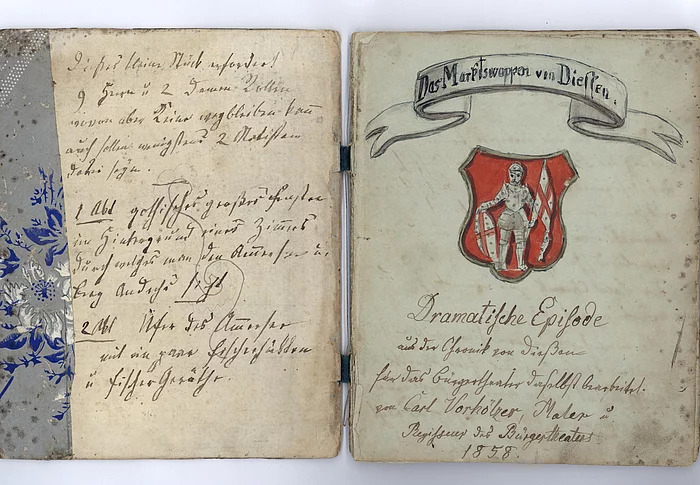 Dieses kleine Stück erfordert
9 Herrn u 2 Damen Rollen
wovon aber Keine wegbleiben kann
auch sollen wenigstens 2 Statisten
dabei seyn.
1 Abt gothisches großes Fenster
im Hintergrund eines Zimmers
durch welches man den Ammersee u.
berg Andechs sieht
2 Abt Ufer des Ammersee
mit ein paar Fischerhütten
u Fischer Geräthe.
Das Marktswappen von Diessen.
Dramatische Episode
aus der Chronik von Dießen
für das Bürgertheater daselbst bearbeitet.
von Carl Vorhölzer, Maler u
Regisseur des Bürgertheaters
1858.